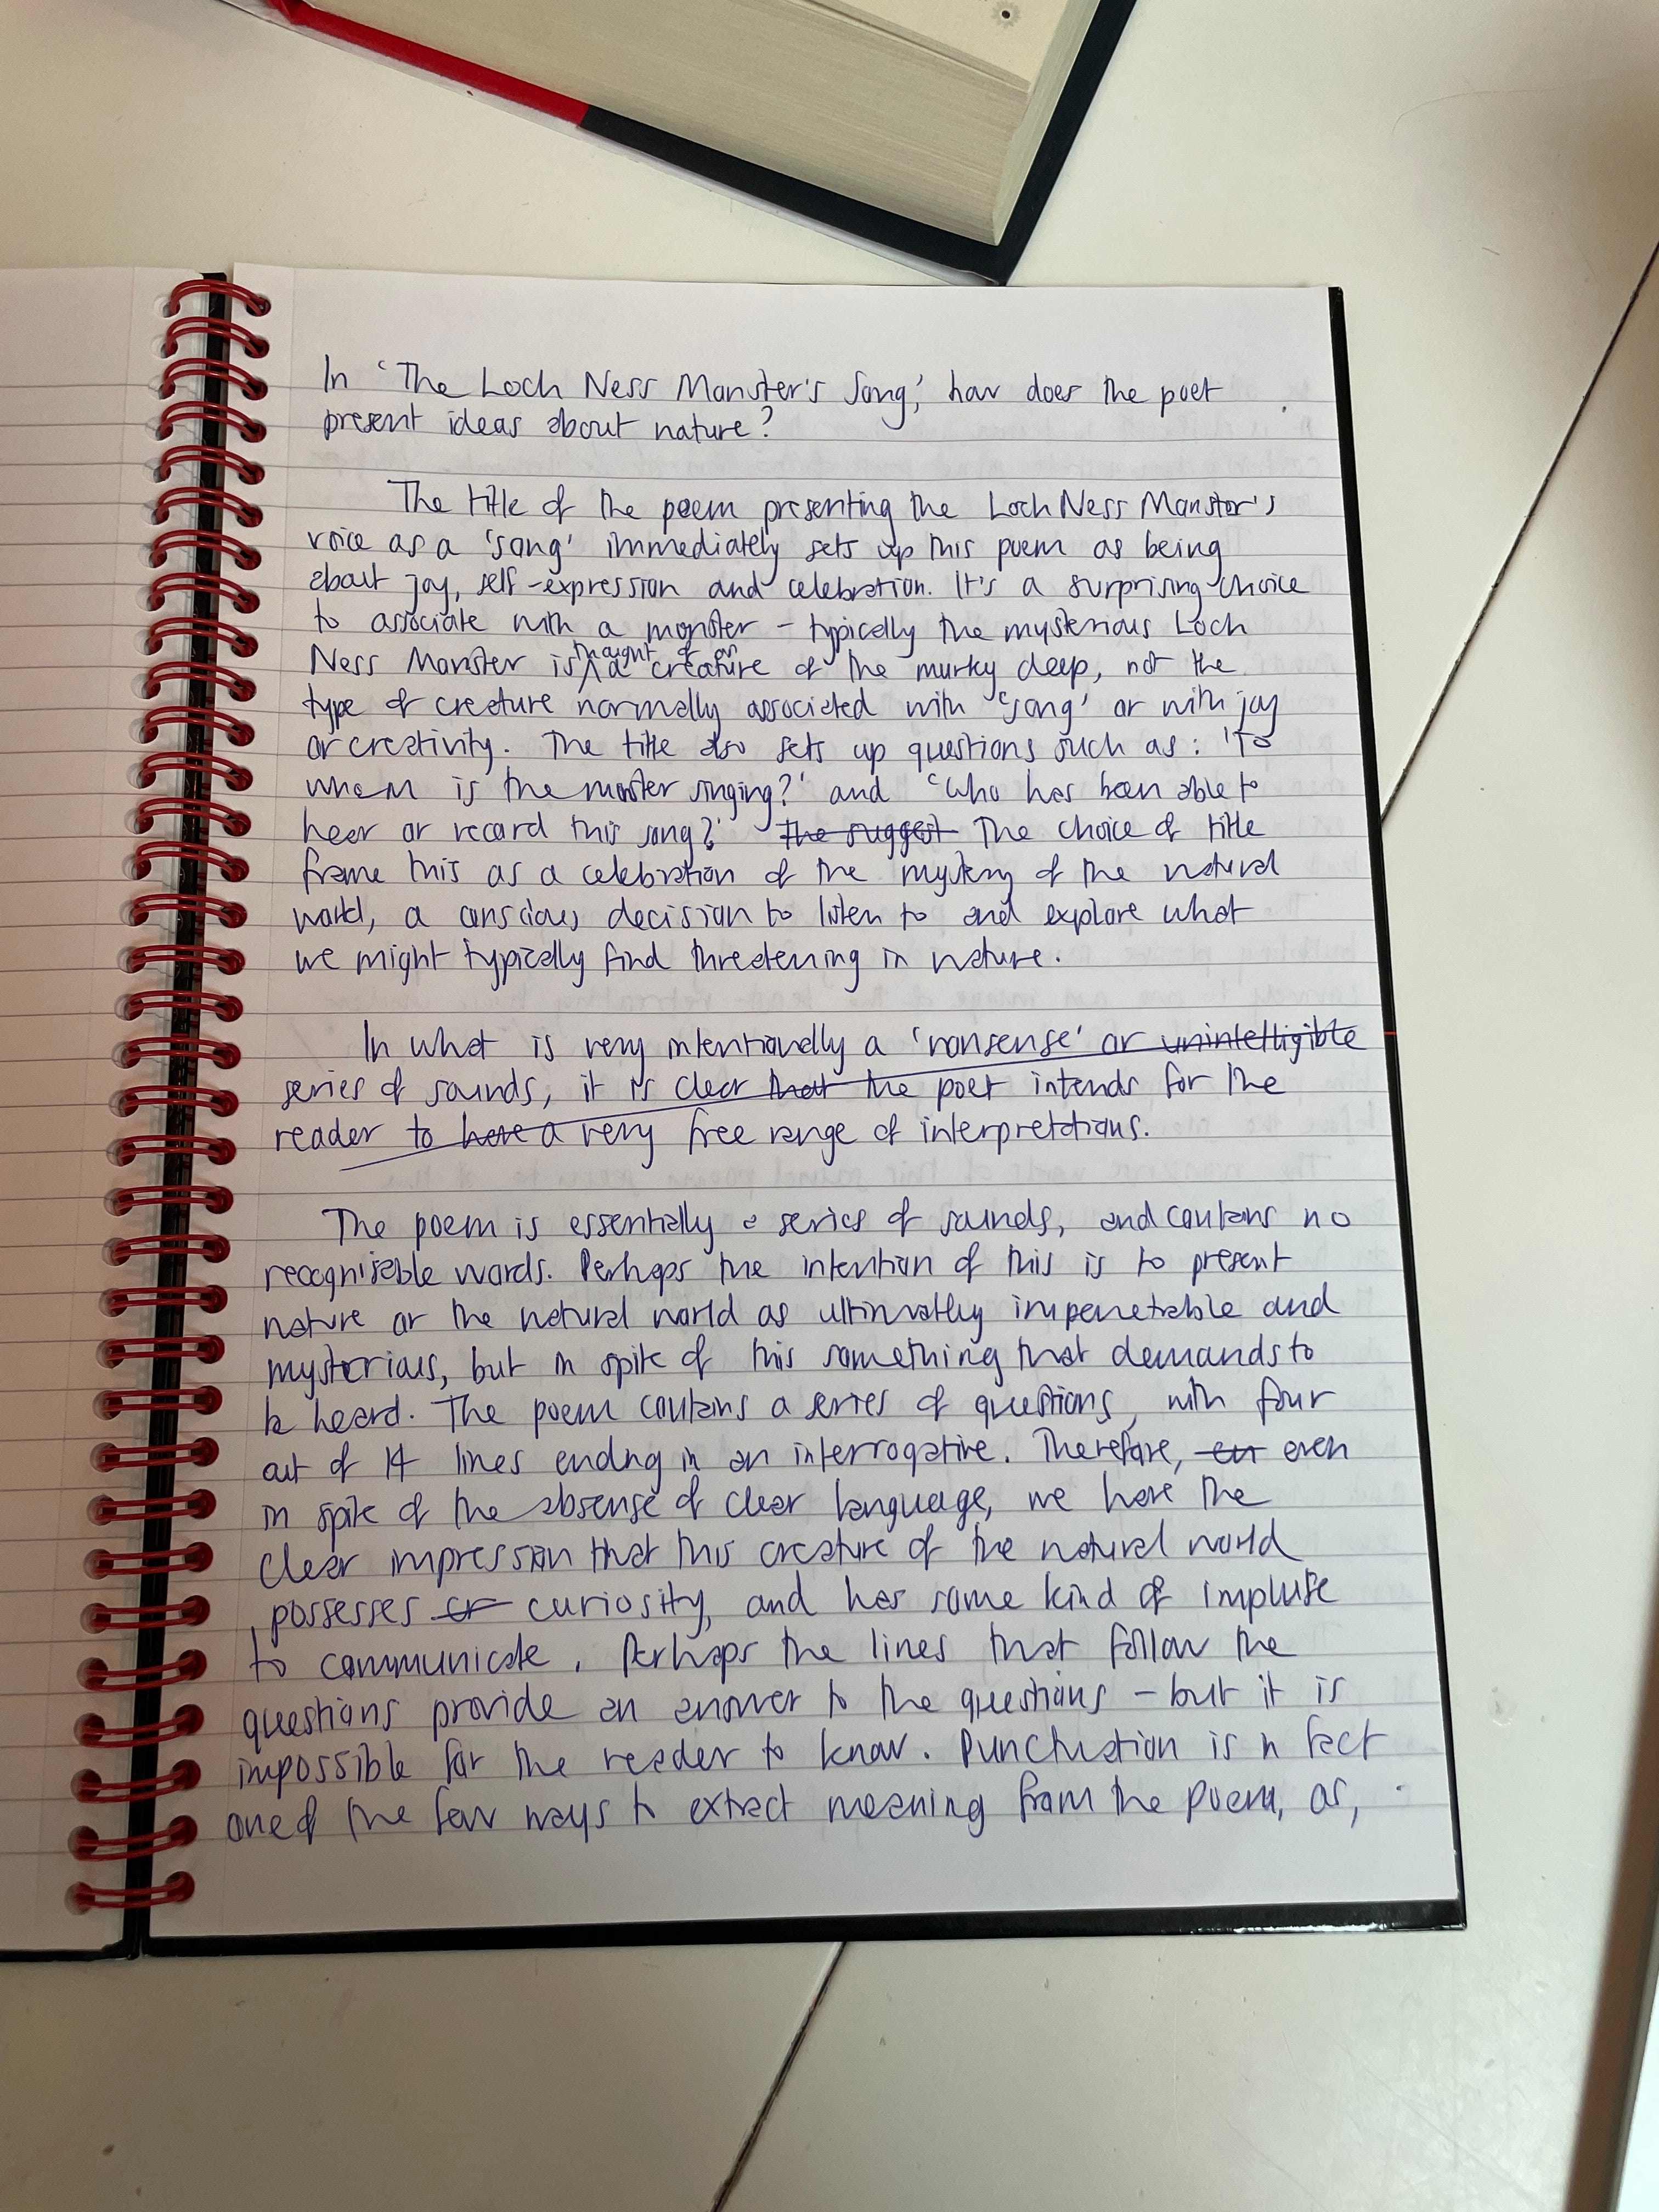 In 'The Loch Ness Monster's Song,' how does the poet
present ideas about nature?
The title of the poem presenting the Loch Ness Monster's
voice as a 'song' immediately sets up this poem as being
about joy, self-expression and celebration. It's a surprising choice
to associate with a monster - typically the mysterious Loch
Ness Monster is thought of as a creature of the murky deep, not the
type of creature normally associated with 'song' or with joy
or creativity. The title also sets up questions such as: 'To
whom is the monster singing?' and 'Who has been able to
hear or record this song?' The suggest The choice of title
frame this as a celebration of the mystery of the natural
world, a conscious decision to listen to and explore what
we might typically find threatening in nature.
In what is very intentionally a 'nonsense' or unintelligible
series of sounds, it is clear that the poet intends for the
reader to have a very free range of interpretations.
The poem is essentially a series of sounds, and contains no
recognisable words. Perhaps the intention of this is to present
nature or the natural world as ultimately impenetrable and
mysterious, but in spite of this something that demands to
be heard. The poem contains a series of questions, with four
out of 14 lines ending in an interrogative. Therefore, eu even
in spite of the absense of clear language, we have the
clear impression that this creature of the natural world
possesses cr curiosity, and has some kind of impluse
to communicate. Perhaps the lines that follow the
questions provide an answer to the questions - but it is
impossible for the reader to know. Punctuation is in fact
one of the few ways to extract meaning from the poem, as,